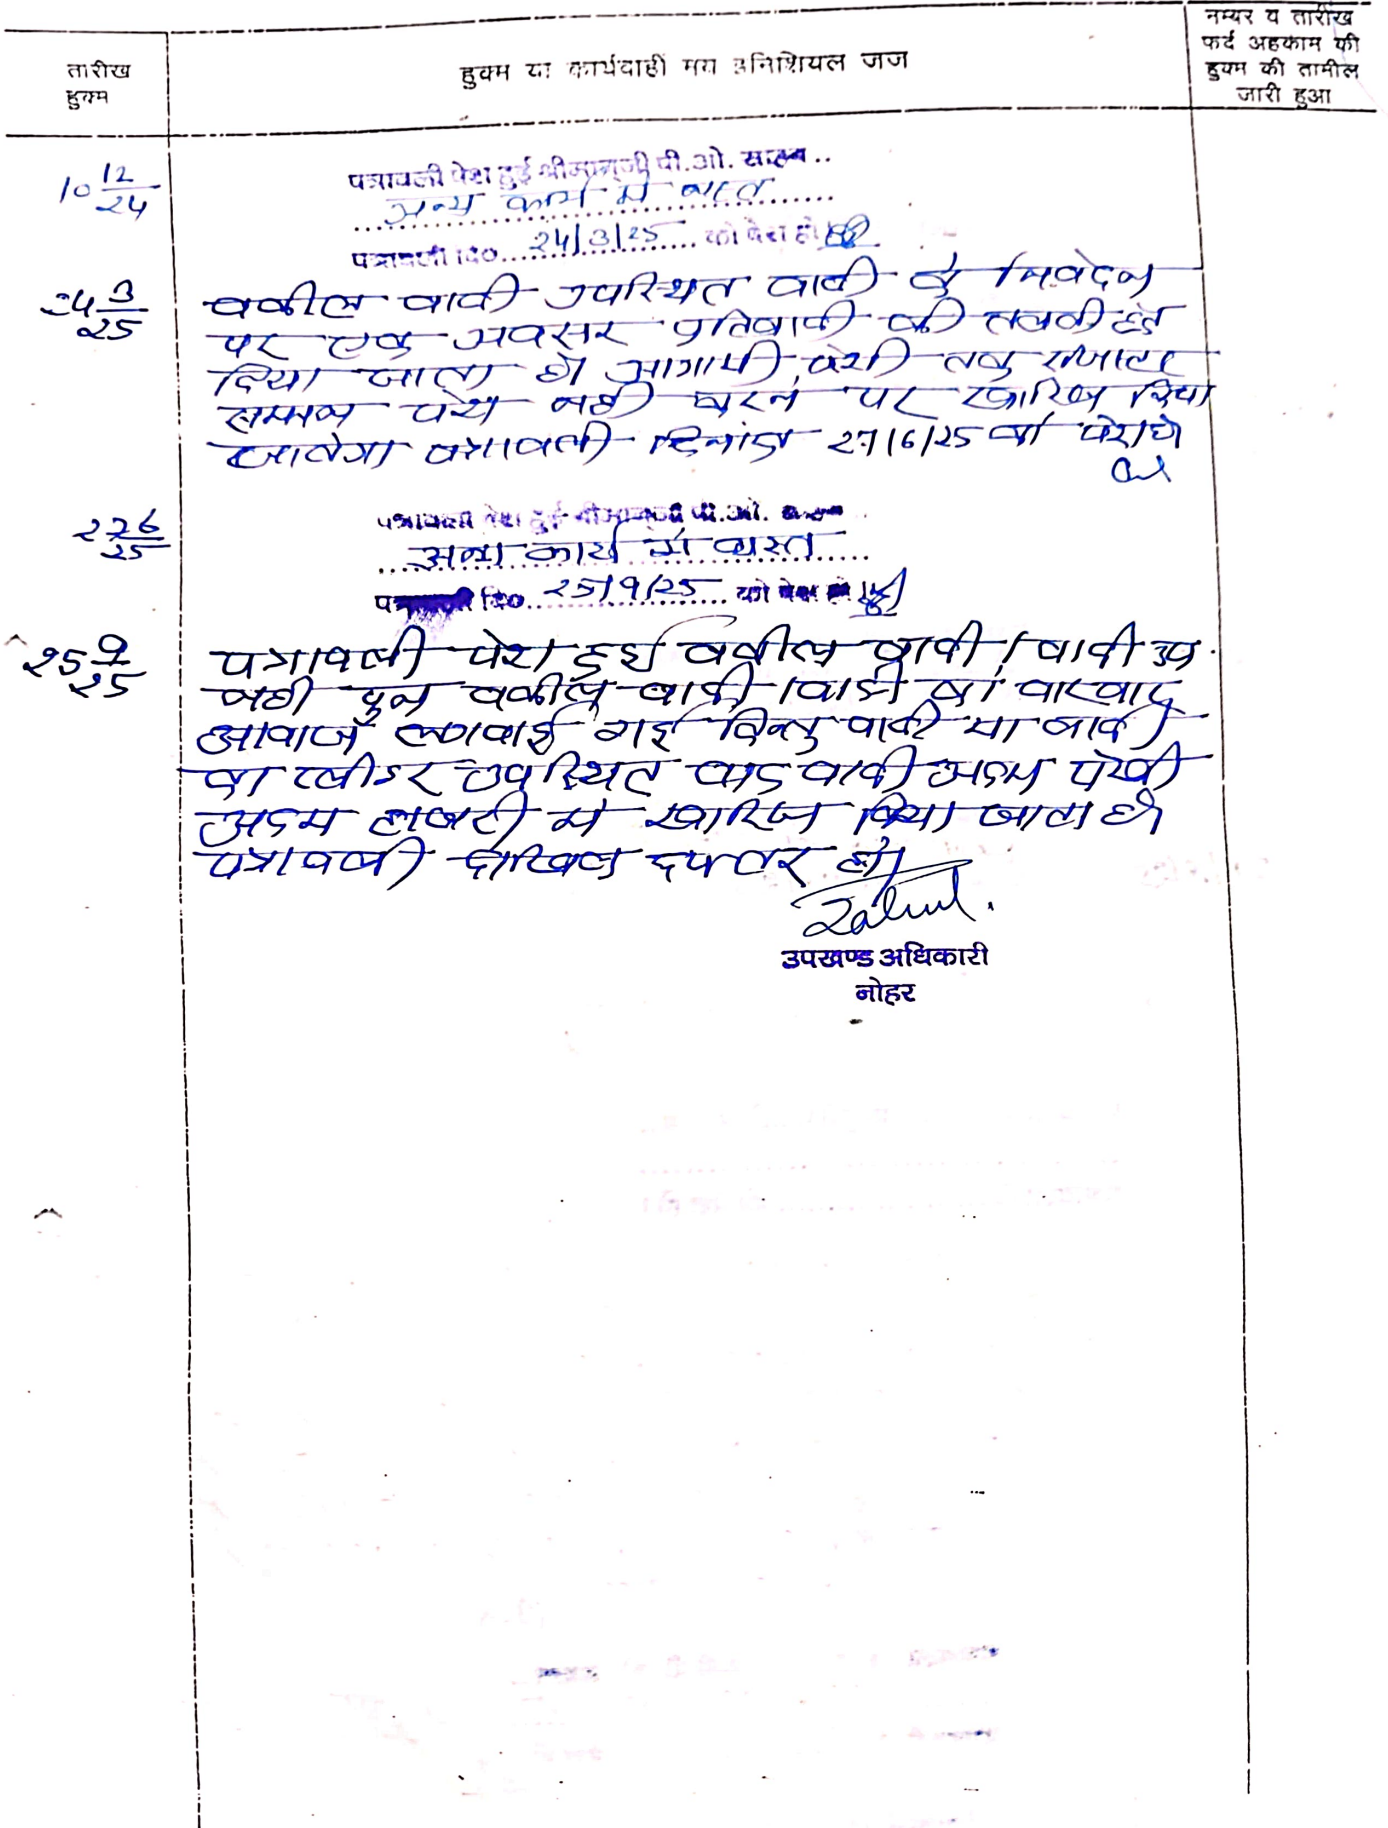 तारीख
हुक्म
हुक्म या कार्यवाही मय इनिशियल जज
नम्बर व तारीख
फर्द अहकाम की
हुक्म की तामील
जारी हुआ
10 12/24
पत्रावली पेश हुई श्रीमान्‌जी पी.ओ. साहब..
अन्य कार्य में व्यस्त
पत्रावली दि० 24/3/25 को पेश हो।
24 3/25
वकील वादी उपस्थित वादी के निवेदन
पर एक अवसर प्रतिवादी की तलबी हेतु
दिया जाता है। आगामी पेशी तक रजिस्टर
सम्मन पेश नहीं करने पर खारिज किया
जावेगा पत्रावली दिनांक 27/6/25 को पेश हो
27 6/25
पत्रावली पेश हुई श्रीमान्‌जी पी.ओ. साहब
अन्य कार्य में व्यस्त
दि० 25/9/25 को पेश हो
25 9/25
पत्रावली पेश हुई वकील वादी / वादी उप.
नही पुन वकील वादी / वादी को बारबार
आवाजें लगवाई गई किन्तु वादी या वादी
का प्लीडर उपस्थित वाद वादी अदम पेरवी
अदम हाजरी में खारिज किया जाता है।
पत्रावली दाखिल दफ्तर हो।
उपखण्ड अधिकारी
नोहर